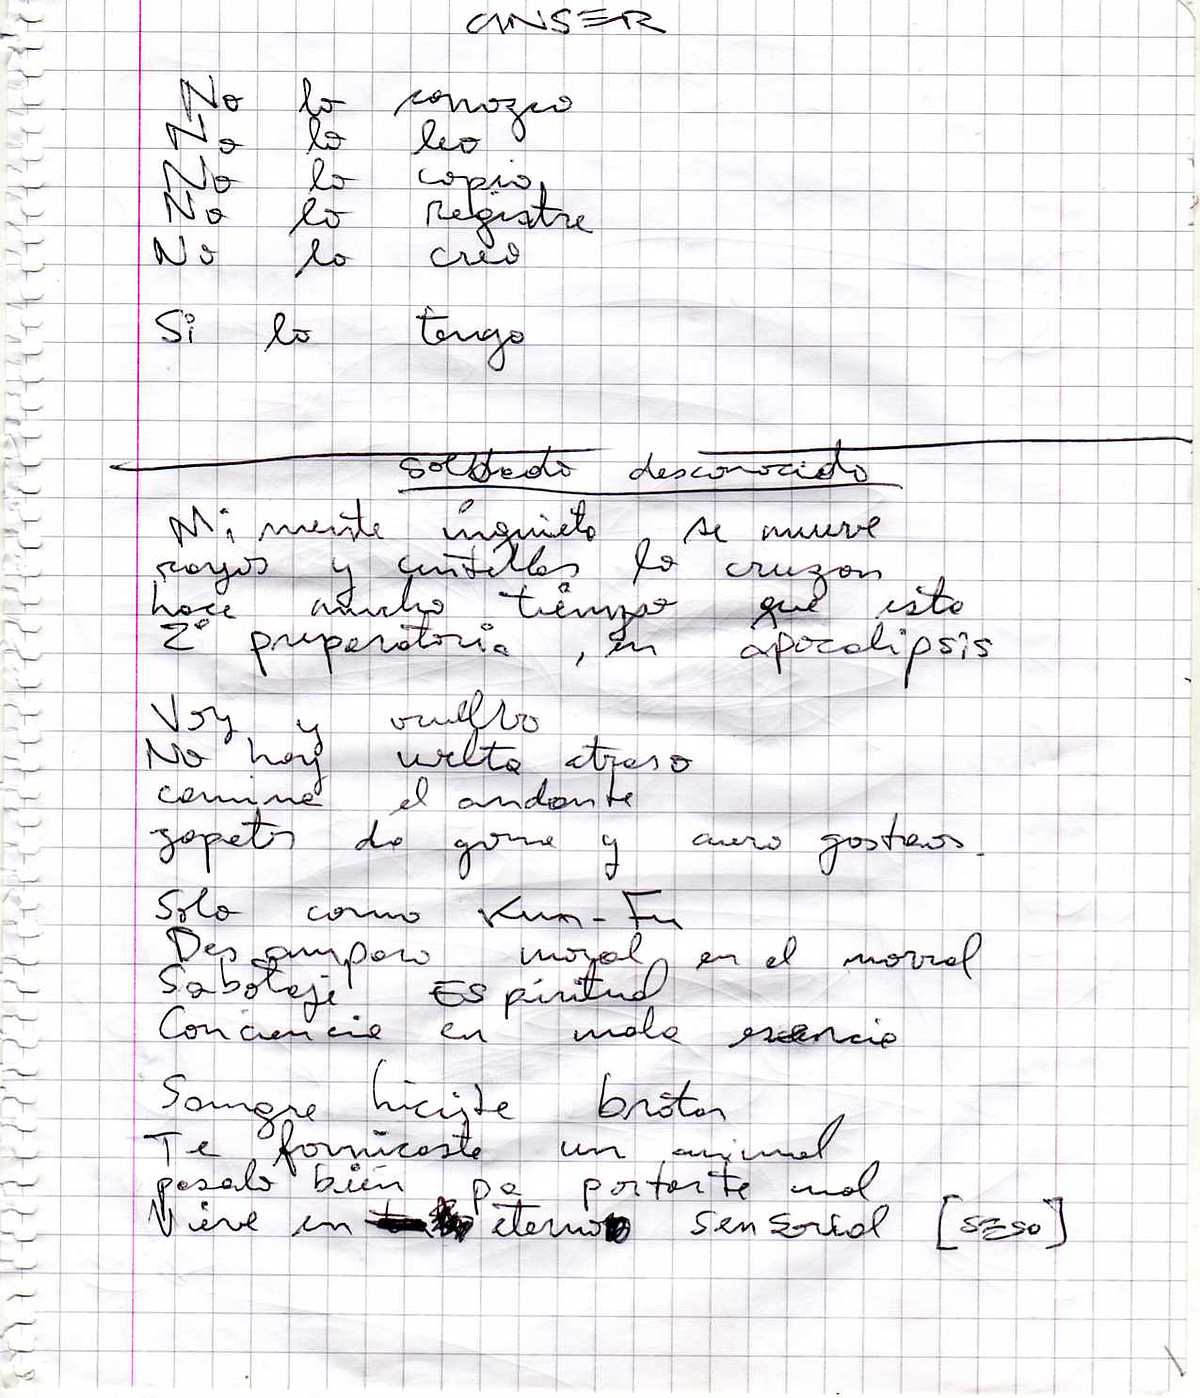 CINSER
No lo conozco
No lo leo
No lo copio,
No lo Registre
No lo creo
Si lo tengo
soldado desconocido
Mi mente inquieta se mueve
rayos y centellas la cruzan
hace mucho tiempo que esta
2º preparatoria, en apocalipsis
Voy y vuelvo
No hay vuelta atraso
camina el andante
zapatos de goma y cuero gastaos.
Solo como Kun-Fu
Desamparo moral en el morral
Sabotaje ESpiritual
Conciencia en mala esencia
Sangre hiciste brotar
Te fornicaste un animal
pasalo bien pa portarte mal
Vive en eterno senSorial [SESO]